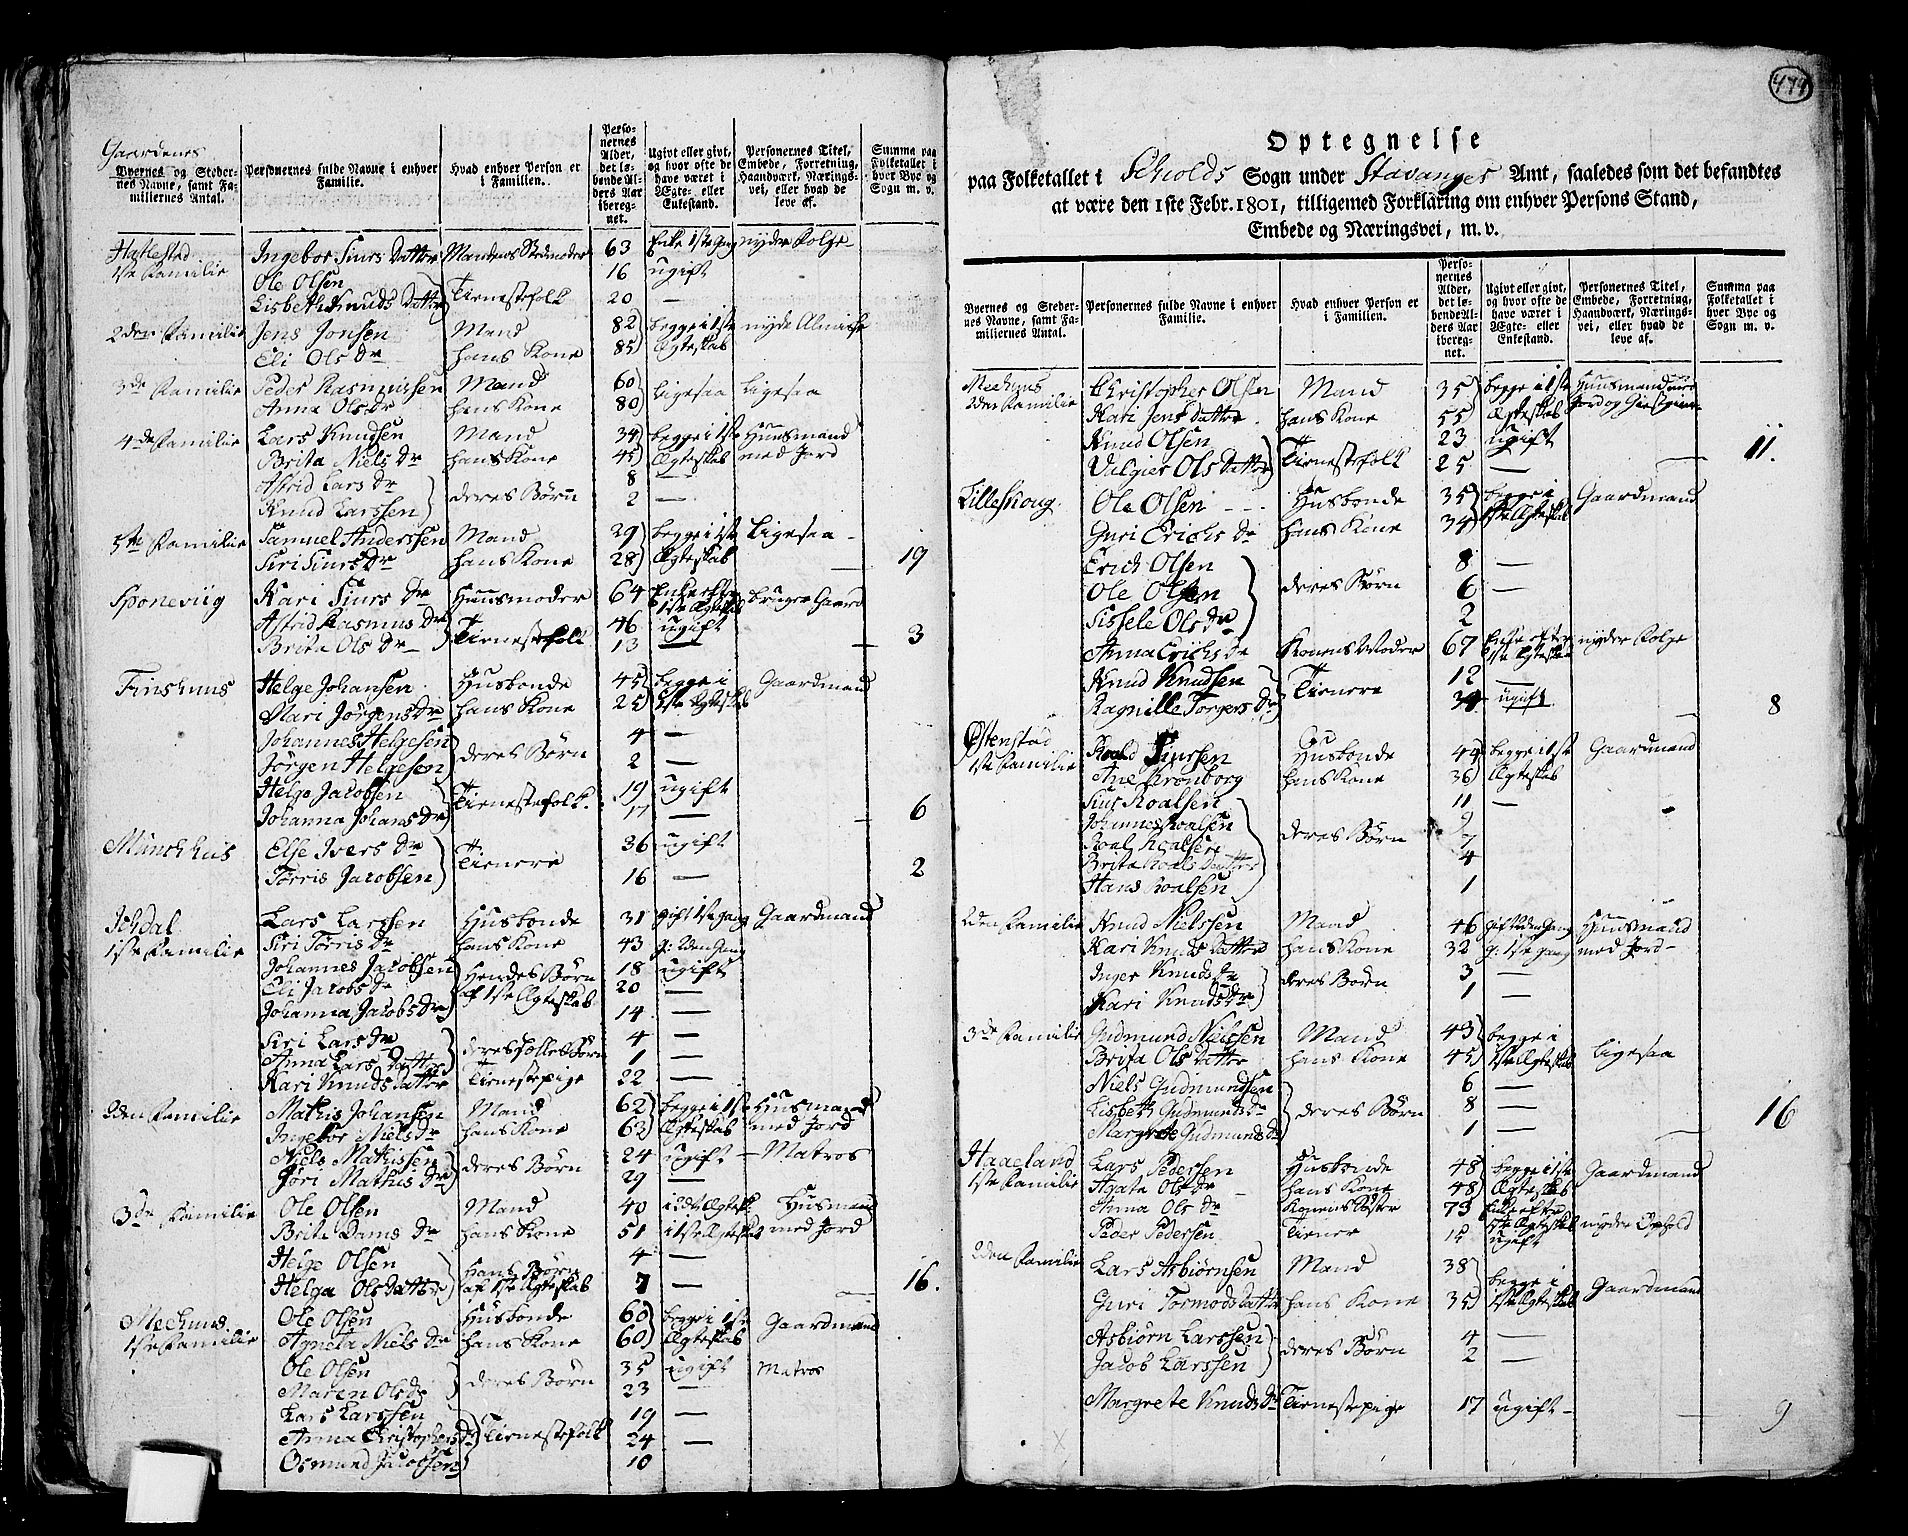 Gaardenes
Byernes og Steder-
nes Navne, samt Fa-
miliernes Antal.
Personernes fulde Navne i enhver
Familie.
Hvad enhver Person er
i Familien.
Perso-
nernes
Alder,
det lø-
bende Al-
ders Aar
ibereg-
net.
Ugivt eller givt,
og hvor ofte de
have været i
Ægte- eller
Enkestand.
Personernes Titel,
Embede, Forretning,
Haandværk, Nærings-
vei, eller hvad de
leve af.
Summa paa
Folketallet i
hver Bye og
Sogn m. v.
Hatlestad
1ste Familie Ingebor Siurs Datter Mandens Stedmoder 63 Enke 1ste Gang nyder Folge
Ole Olsen 16 ugift
Lisbeth Knuds Datter Tienestefolk 20 —
2den Familie Jens Jonsen Mand 82 begge i 1ste nyde Almisse
Eli Ols Dr hans Kone 85 Ægteskab
3de Familie Peder Rasmusen Mand 60 Ligesaa Ligesaa
Anna Ols Dr hans Kone 80
4de Familie Lars Knudsen Mand 34 begge i 1ste Huusmand
Brita Niels Dr hans Kone 45 Ægteskab med Jord
Astrid Lars Dr 8 —
Knud Larssen deres Børn 2 —
5te Familie Samuel Anderssen Mand 29 begge i 1ste Ligesaa
Siri Siurs Dr hans Kone 28 Ægteskab — 19
Sponeviig Kari Siurs Dr Huusmoder 64 Enke efter 1ste Ægteskab bruger Gaard
Astrid Rasmus Dr 46 ugift
Brita Ols Dr Tienestefolk 13 — 3
Finshuus Helge Johansen Husbonde 45 begge i Gaardmand
Mari Jørgens Dr hans Kone 25 1ste Ægteskab
Johannes Helgesen 4 —
Jørgen Helgesen deres Børn 2 —
Helge Jacobsen 19 ugift
Johanna Johans Dr Tienestefolk 17 — 6
Münchhus Else Ivers Dr Tienere 36 ugift
Torris Jacobsen 16 — 2
Ichdal
1ste Familie Lars Larssen Husbonde 31 gift 1ste Gang Gaardmand
Siri Torris Dr hans Kone 43 g. 2den Gang
Johannes Jacobsen Hendes Børn 18 ugift
Eli Jacobs Dr af 1ste Ægteskab 20 —
Johanna Jacobs Dr 14 —
Siri Lars Dr 4 —
Anna Lars Datter deres fælles Børn 1 —
Kari Knuds Datter Tienestepige 22 —
2den Familie Mathis Johansen Mand 62 begge i 1ste Husmand
Ingebor Niels Dr hans Kone 62 Ægteskab med Jord
Niels Mathissen 24 ugift — Matros
Jøri Mathis Dr deres Børn 29 —
3de Familie Ole Olsen Mand 40 i 2det Ægtesk. Husmand
Brite Dams Dr hans Kone 51 i 1ste Ægteskab med Jord
Helge Olsen Hans Børn 4 —
Helga Ols Datter af 1ste Ægteskab 7 — 16.
Mechuus
1ste Familie Ole Olsen Husbonde 60 begge i 1ste Gaardmand
Agneta Niels Dr hans Kone 60 Ægteskab
Ole Olsen 35 ugift Matros
Maren Ols Dr deres Børn 23 —
Lars Larssen 19 —
Anna Christophers Dr Tienestefolk 24 —
Osmund Jacobsen 10
474
Optegnelse
paa Folketallet i Schiolds Sogn under Stavanger Amt, saaledes som det befandtes
at være den 1ste Febr. 1801, tilligemed Forklaring om enhver Persons Stand,
Embede og Næringsvei, m. v.
Byernes og Steder-
nes Navne, samt Fa-
miliernes Antal.
Personernes fulde Navne i enhver
Familie.
Hvad enhver Person er
i Familien.
Perso-
nernes
Alder,
det lø-
bende Al-
ders Aar
ibereg-
net.
Ugivt eller givt,
og hvor ofte de
have været i
Ægte- eller
Enkestand.
Personernes Titel,
Embede, Forretning,
Haandværk, Nærings-
vei, eller hvad de
leve af.
Summa paa
Folketallet i
hver Bye og
Sogn m. v.
Mechuus
2den Familie Christopher Olsen Mand 35 begge i 1ste Huusmand
Kari Jens Datter hans Kone 55 Ægteskab Jord og
Knud Olsen 23 ugift
Valgier Ols Datter Tienestefolk 25 — 11.
Lilleskoug Ole Olsen Husbonde 35 begge i Gaardmand
Guri Erichs Dr hans Kone 34 1ste Ægteskab
Erich Olsen 8 —
Ole Olsen deres Børn 6 —
Sissele Ols Dr 2
Anna Erichs Dr Konens Moder 67 Enke efter 1ste Ægteskab nyder Folge
Knud Knudsen 12 —
Ragnille Torgers Dr Tienere 34 ugift 8
Østenstad
1ste Familie Roald Siurssen Husbonde 44 begge i 1ste Gaardmand
Ane Kronborg hans Kone 36 Ægteskab
Siur Roalsen 11 —
Johannes Roalsen 9
Roal Roalsen deres Børn 7
Brita Roals Datter 4
Hans Roalsen 1
2den Familie Knud Nielssen Mand 46 gift 2den Gang Huusmand
Kari Knuds Datter hans Kone 32 g. 1ste Gang med Jord
Inger Knuds Dr 3 —
Kari Knuds Dr deres Børn 1 —
3de Familie Gudmund Nielssen Mand 43 begge i
Brita Ols Datter hans Kone 45 1ste Ægteskab Ligesaa
Niels Gudmundsen 6 —
Lisbeth Gudmunds Dr deres Børn 8 —
Margrete Gudmunds Dr 1 — 16
Haaeland
1ste Familie Lars Pedersen Husbonde 48 begge i 1ste Gaardmand
Agate Ols Dr hans Kone 48 Ægteskab
Anna Ols Dr Konens Søster 73 Enke efter 1ste Ægteskab nyder Ophold
Peder Pedersen Tiener 15 ugift
2den Familie Lars Asbiørnsen Mand 38 begge i
Guri Tormods Datter hans Kone 35 1ste Ægteskab Gaardmand
Asbiørn Larssen 4 —
Jacob Larssen deres Børn 2 —
Margrete Knuds Dr Tienestepige 17 ugift — 9